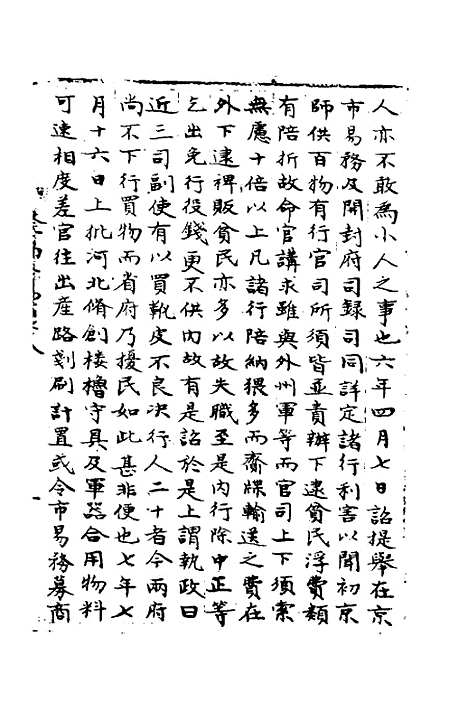 人亦不敢為小人之事也六年四月七日詔提舉在京
市易務及開封府司録司同詳定諸行利害以聞初京
師供百物有行官司所須皆並責辦下逮貧民浮費類
有陪折故命官講求雖與外州軍等而官司上下須索
無慮十倍以上凡諸行陪納猥多而齎㯟輸送之費在
外下逮稗販貧民亦多以故失職至是内行除中正等
乞出免行役錢更不供内故有是詔於是上謂執政曰
近三司副使有以買靴皮不良决行人二十者令兩府
尚不下行買物而省府乃擾民如此甚非便也七年七
月十六日上批河北脩創楼櫓守具及軍器合用物料
可速相度差官往出産路刬刷計置或令市易務募商